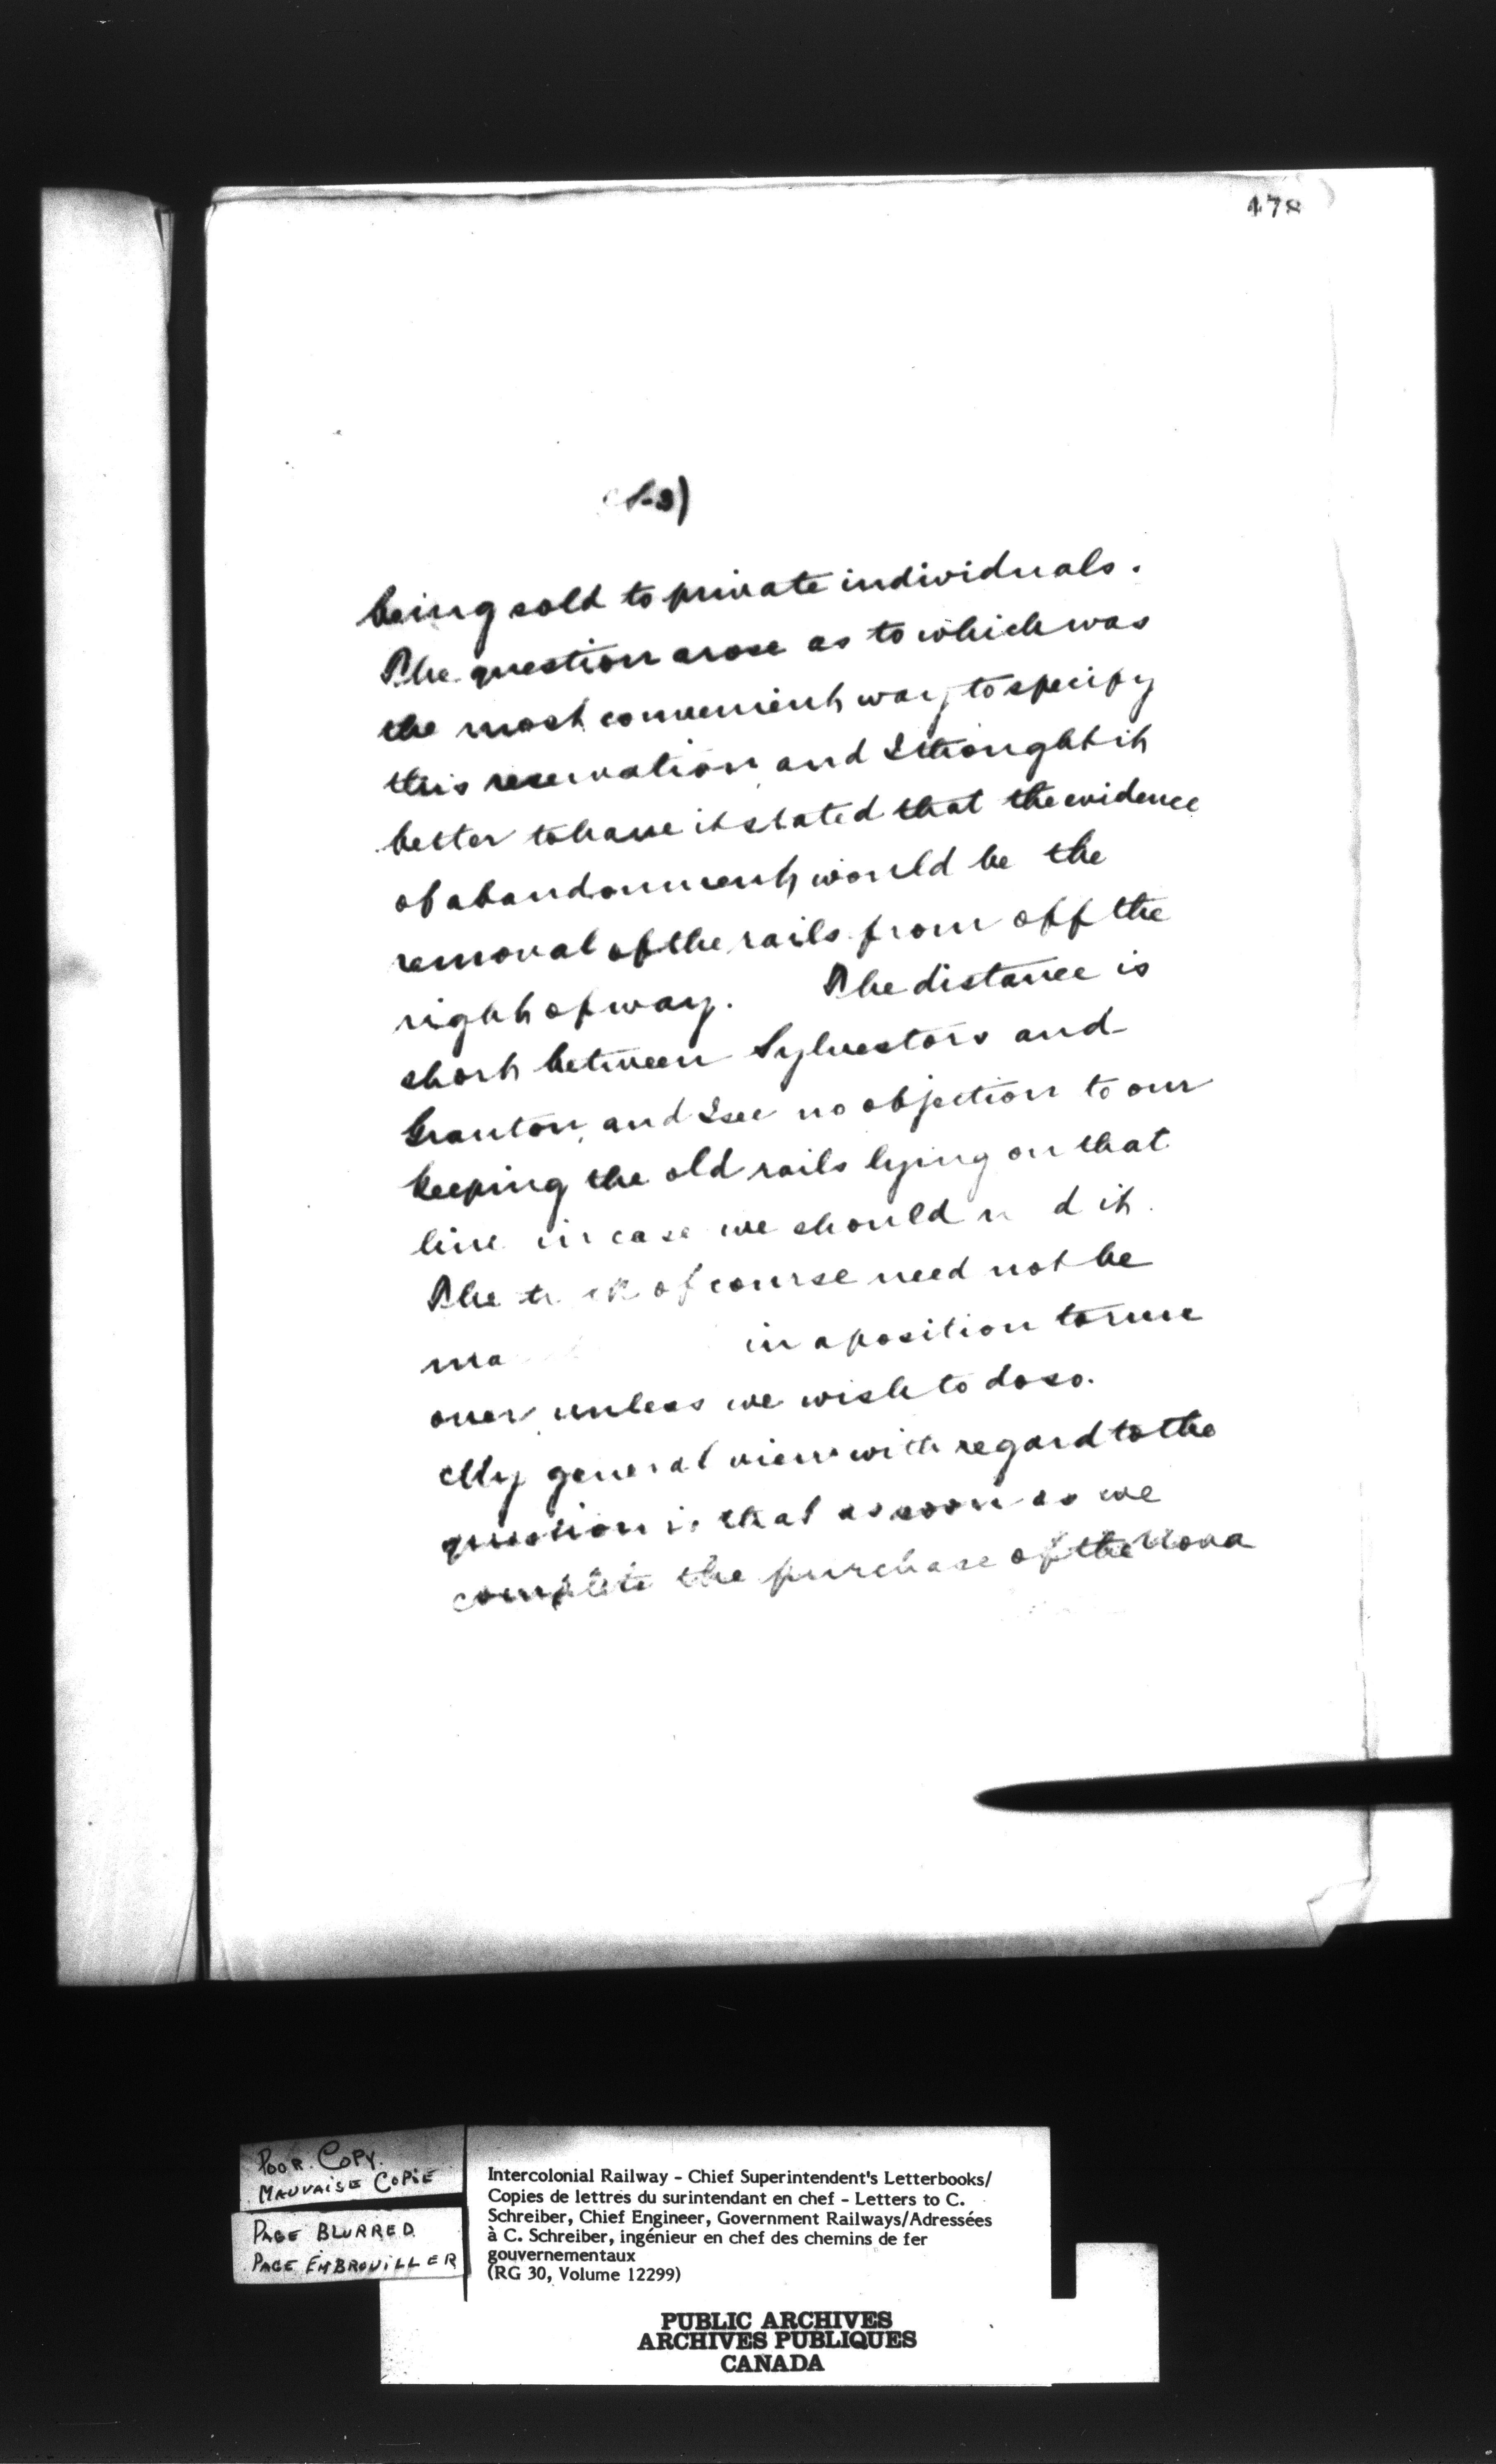 478
being sold to private individuals.
The question arose as to which was
the most convenient way to specify
this reservation and I thought it
better to have it stated that the evidence
of abandonment would be the
removal of the rails from off the
right of way. The distance is
short between Sylvestors and
Granton, and I see no objection to our
keeping the old rails lying on that
line in case we should d it.
The of course need not be
in a position to run
over unless we wish to do so.
My general view with regard to the
question is that as soon as we
complete the purchase of the Nova
POOR COPY.
MAUVAISE COPIE
PAGE BLURRED
PAGE EMBROUILLER
Intercolonial Railway - Chief Superintendent's Letterbooks/
Copies de lettres du surintendant en chef - Letters to C.
Schreiber, Chief Engineer, Government Railways/Adressées
à C. Schreiber, ingénieur en chef des chemins de fer
gouvernementaux
(RG 30, Volume 12299)
PUBLIC ARCHIVES
ARCHIVES PUBLIQUES
CANADA